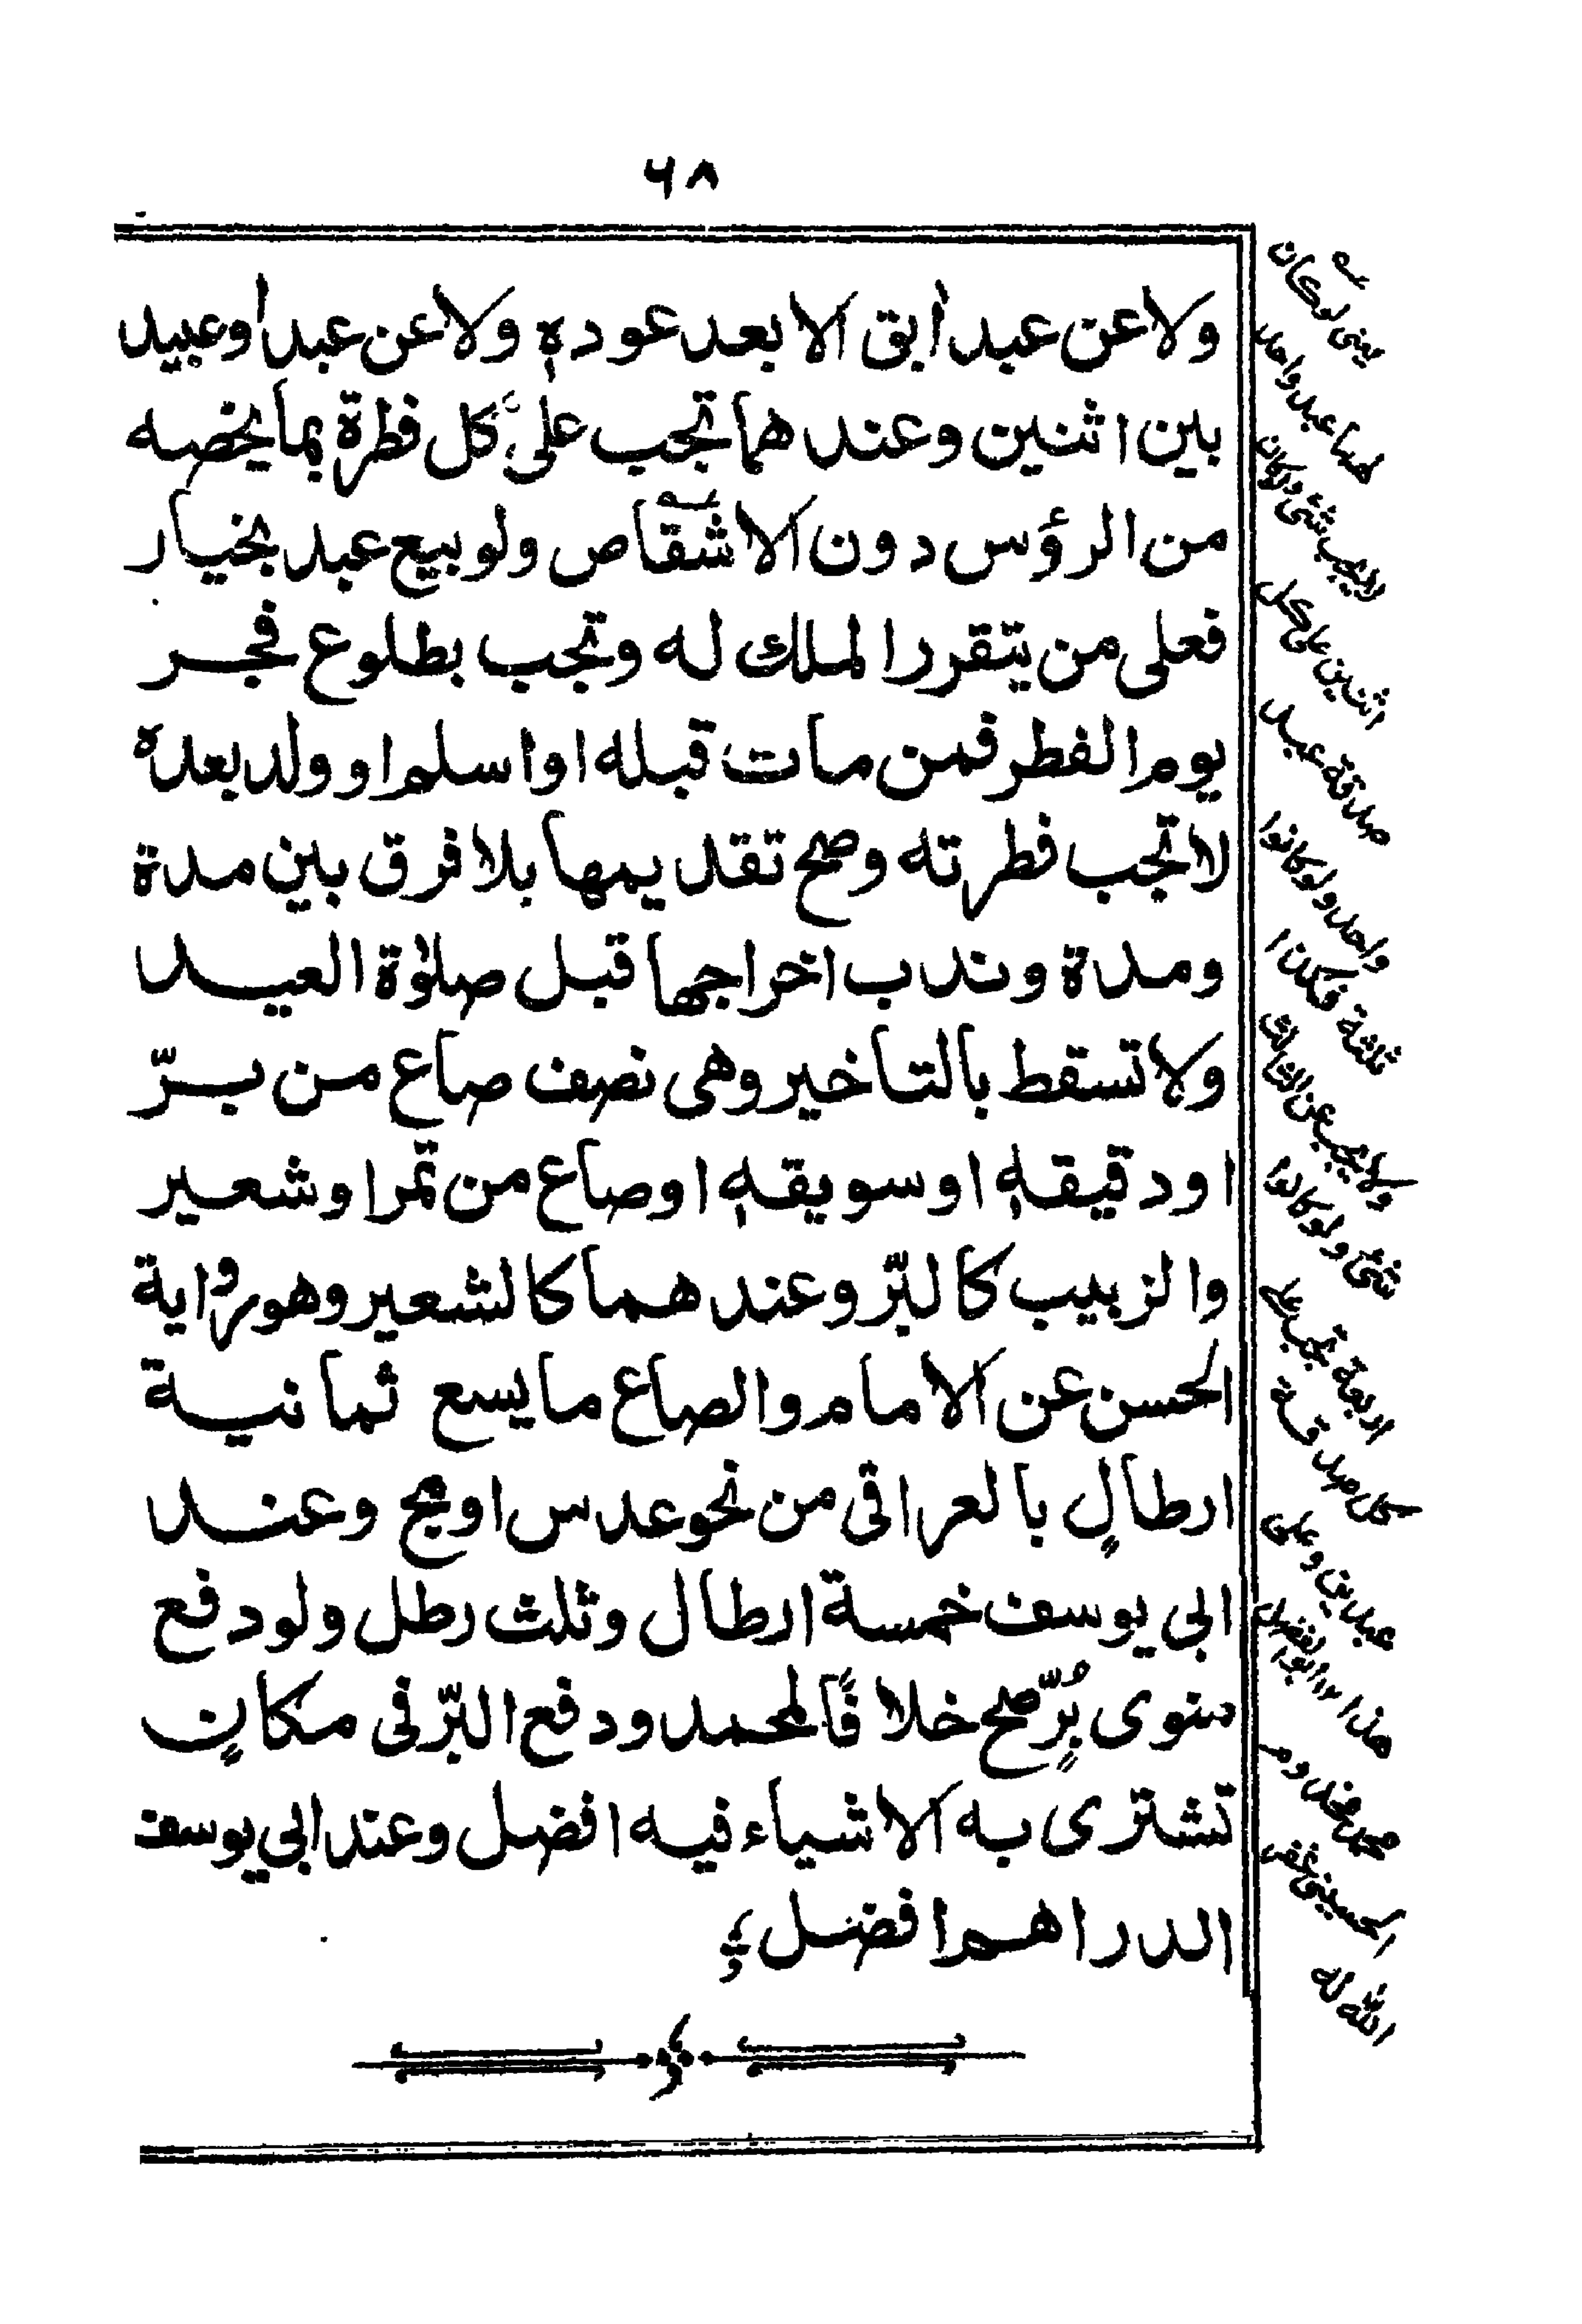 ٦٨
ولا عن عبد أبق الا بعد عوده ولا عن عبد او عبيد
بين اثنين وعندهما تجب على كل فطرة بما يخصه
من الرؤس دون الاشقاص ولو بيع عبد بخيار
فعلى من يتقرر الملك له وتجب بطلوع فجر
يوم الفطر فمن مات قبله او ا سلم او ولد بعده
لا تجب فطرته وصح تقديمها بلا فرق بين مدة
ومدة وندب اخراجها قبل صلوة العيد
ولا تسقط بالتاخير وهى نصف صاع من برّ
او دقيقه او سويقه او صاع من تمر او شعير
والزبيب كالبرّ وعندهما كالشعير وهو رواية
الحسن عن الامام والصاع ما يسع ثمانية
ارطالٍ بالعراقى من نحو عدس او مج وعند
ابى يوسف خمسة ارطال وثلث رطل ولو دفع
منوى بُرٍّ صح خلافًا لمحمد ودفع البرّ فى مكانٍ
تشترى به الاشياء فيه افضل وعند ابي يوسف
الدراهم افضل
يعنى لو كان
لهما عبد واحد
لا يجب شئ ولو كان
اثنين على كل
صدقة عبد
واحد ولو كانوا
ثلثة فكذا
ولا يجب عن الثالث
شئ ولو كانوا
اربعة تجب على
كل صدقة
عبدين وعلى
هذا ١٢ ابو الفضل
الحسينى غفر
الله له